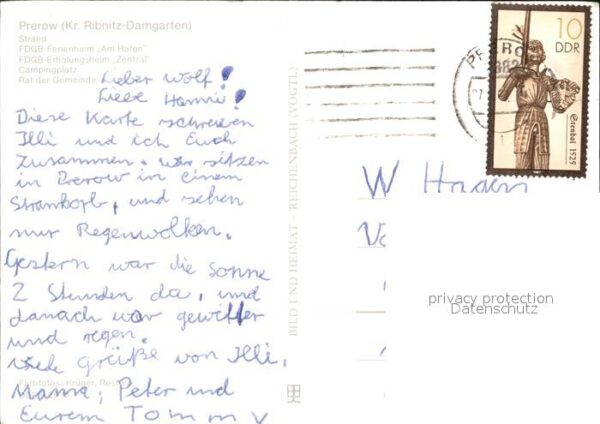 Prerow (Kr. Ribnitz-Damgarten)
Strand
FDGB-Ferienheim „Am Hafen"
FDGB-Erholungsheim „Zentral"
Campingplatz
Rat der Gemeinde
Lieber Wolf!
Liebe Hanni!
Diese Karte schreiben
Illi und ich Euch
Zusammen. wir sitzen
in Prerow in einem
Strankorb, und sehen
nur Regenwolken.
Gestern war die Sonne
2 Stunden da, und
danach war gewitter
und regen.
viele Grüße von Illi,
Mama, Peter und
Eurem Tommy
Farbfotos: Krüger,
BILD UND HEIMAT REICHENBACH (VOGTL)
10
DDR
Stendal 1525
W
privacy protection
Datenschutz